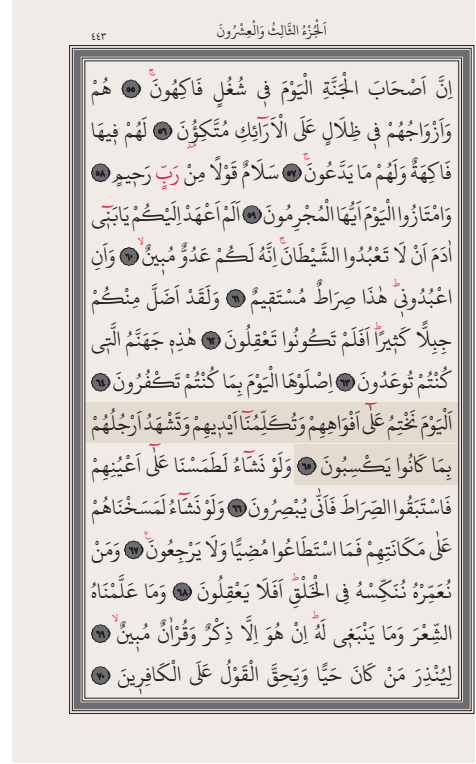 ٤٤٣ اَلْجُزْءُ الثَّالِثُ وَالْعِشْرُونَ
اِنَّ اَصْحَابَ الْجَنَّةِ الْيَوْمَ ف۪ي شُغُلٍ فَاكِهُونَۚ ﴿٥٥﴾ هُمْ
وَاَزْوَاجُهُمْ ف۪ي ظِلَالٍ عَلَى الْاَرَٓائِكِ مُتَّكِؤُ۫نَ ﴿٥٦﴾ لَهُمْ ف۪يهَا
فَاكِهَةٌ وَلَهُمْ مَا يَدَّعُونَۚ ﴿٥٧﴾ سَلَامٌ قَوْلًا مِنْ رَبٍّ رَح۪يمٍ ﴿٥٨﴾
وَامْتَازُوا الْيَوْمَ اَيُّهَا الْمُجْرِمُونَ ﴿٥٩﴾ اَلَمْ اَعْهَدْ اِلَيْكُمْ يَا بَن۪ٓي
اٰدَمَ اَنْ لَا تَعْبُدُوا الشَّيْطَانَۚ اِنَّهُ لَكُمْ عَدُوٌّ مُب۪ينٌۙ ﴿٦٠﴾ وَاَنِ
اعْبُدُون۪يۜ هٰذَا صِرَاطٌ مُسْتَق۪يمٌ ﴿٦١﴾ وَلَقَدْ اَضَلَّ مِنْكُمْ
جِبِلًّا كَث۪يرًاۜ اَفَلَمْ تَكُونُوا تَعْقِلُونَ ﴿٦٢﴾ هٰذِه۪ جَهَنَّمُ الَّت۪ي
كُنْتُمْ تُوعَدُونَ ﴿٦٣﴾ اِصْلَوْهَا الْيَوْمَ بِمَا كُنْتُمْ تَكْفُرُونَ ﴿٦٤﴾
اَلْيَوْمَ نَخْتِمُ عَلٰٓى اَفْوَاهِهِمْ وَتُكَلِّمُنَٓا اَيْد۪يهِمْ وَتَشْهَدُ اَرْجُلُهُمْ
بِمَا كَانُوا يَكْسِبُونَ ﴿٦٥﴾ وَلَوْ نَشَٓاءُ لَطَمَسْنَا عَلٰٓى اَعْيُنِهِمْ
فَاسْتَبَقُوا الصِّرَاطَ فَاَنّٰى يُبْصِرُونَ ﴿٦٦﴾ وَلَوْ نَشَٓاءُ لَمَسَخْنَاهُمْ
عَلٰى مَكَانَتِهِمْ فَمَا اسْتَطَاعُوا مُضِيًّا وَلَا يَرْجِعُونَ۟ ﴿٦٧﴾ وَمَنْ
نُعَمِّرْهُ نُنَكِّسْهُ فِي الْخَلْقِۜ اَفَلَا يَعْقِلُونَ ﴿٦٨﴾ وَمَا عَلَّمْنَاهُ
الشِّعْرَ وَمَا يَنْبَغ۪ي لَهُۜ اِنْ هُوَ اِلَّا ذِكْرٌ وَقُرْاٰنٌ مُب۪ينٌۙ ﴿٦٩﴾
لِيُنْذِرَ مَنْ كَانَ حَيًّا وَيَحِقَّ الْقَوْلُ عَلَى الْكَافِر۪ينَ ﴿٧٠﴾